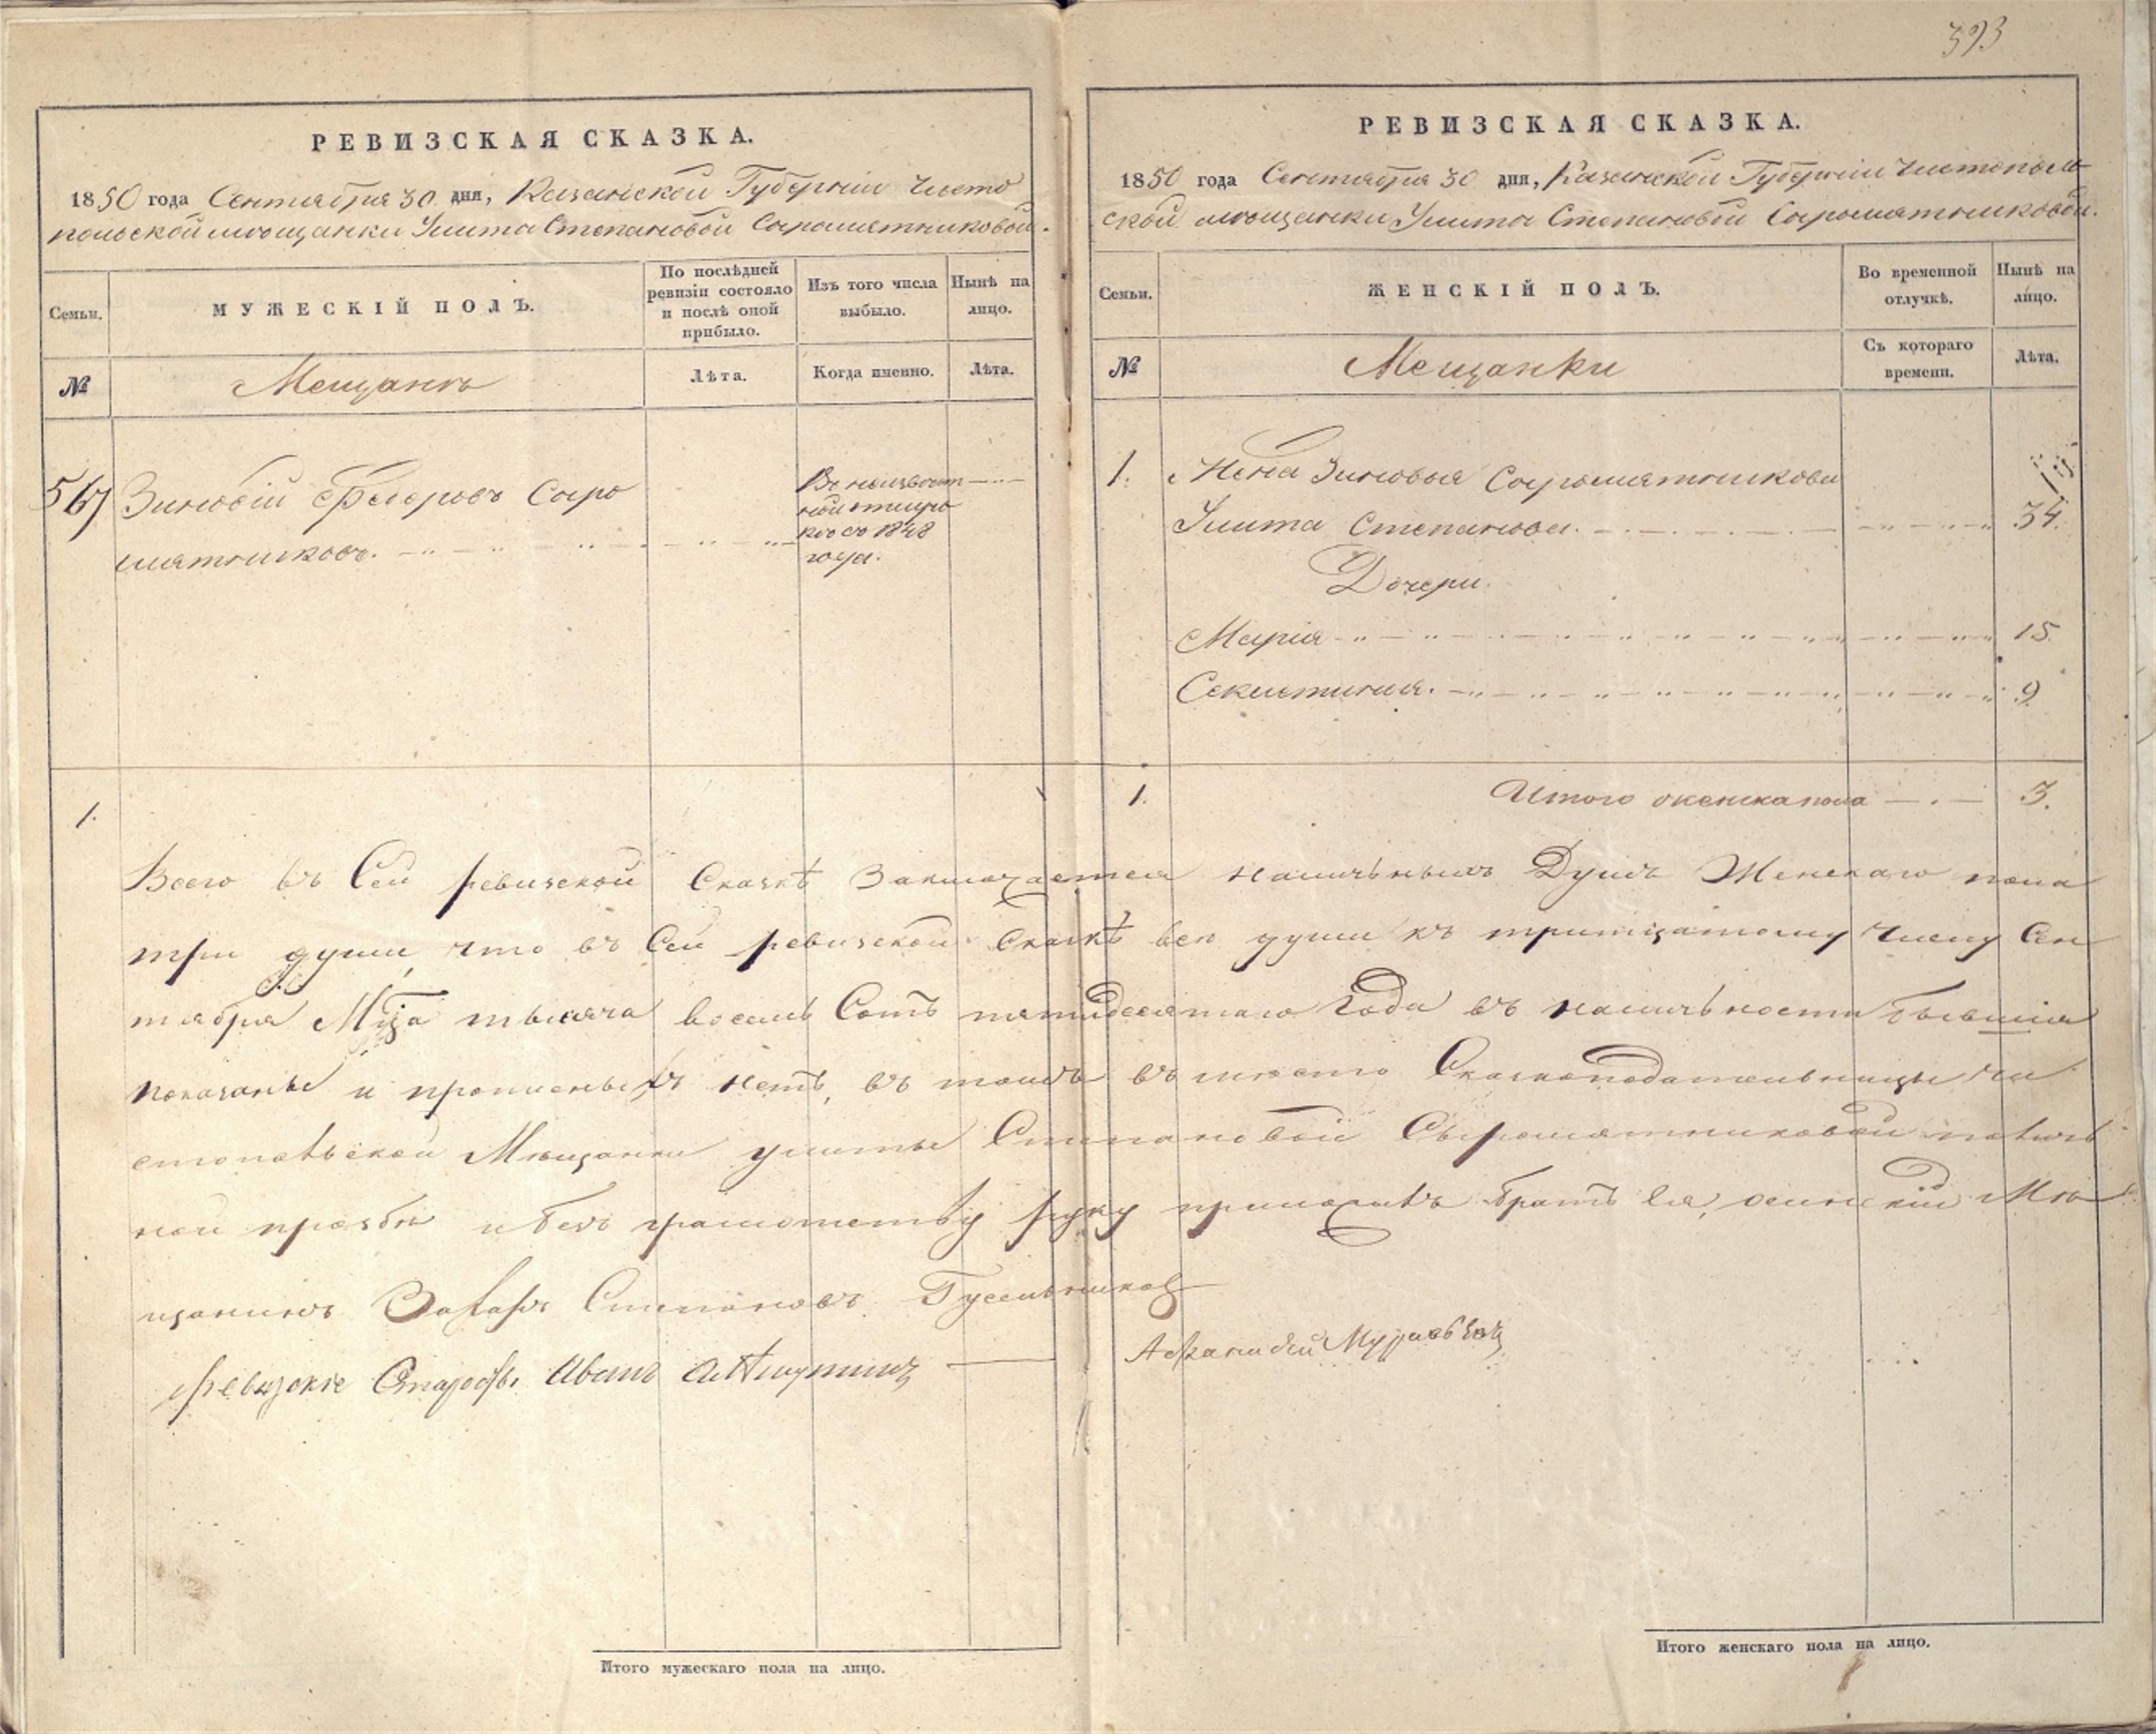 393
РЕВИЗСКАЯ СКАЗКА.
1850 года Сентября 30 дня, Казанской Губернiи Чисто
польской мѣщанки Улита Степановой Сыромятниковой.
Семьи.
МУЖЕСКIЙ ПОЛЪ.
По послѣдней
ревизiи состояло
и послѣ оной
прибыло.
Изъ того числа
выбыло.
Нынѣ на
лицо.
№
Мещанъ
Лѣта.
Когда именно.
Лѣта.
567
Зиновiй Федоровъ Сыро
мятниковъ.
Въ неизвѣст
ной отлуч
кѣ съ 1848
года.
1.
РЕВИЗСКАЯ СКАЗКА.
1850 года Сентября 30 дня, Казанской Губернiи Чистополь
ской мѣщанки Улита Степановой Сыромятниковой.
Семьи.
ЖЕНСКIЙ ПОЛЪ.
Во временной
отлучкѣ.
Нынѣ на
лицо.
№
Мещанки
Съ котораго
времени.
Лѣта.
1. Жена Зиновья Сыромятникова
Улита Степанова. 34.
Дочери.
Марiя 15.
Секлетиния. 9
1. Итого женска пола 3.
Всего въ Сей ревизской Сказкѣ Заключается наличьныхъ Душъ Женскаго пола
три души, что въ Сей ревизской Сказкѣ всѣ души къ тритцатому числу Сен
тября Мца тысяча восемь Сотъ пятидесятаго Года въ наличьности бывшiя
показаны и прописныхъ нетъ, въ томъ въ место Сказкоподательницы чи
стопольской Мѣщанки улиты Степановой Сыромятниковой по личь
ной прозбѣ и безъ грамотству руку приложилъ братъ Ея, осинскiй Мѣ
щанинъ Захаръ Степановъ Гусельников
Ревизскiе Старосты Иванъ